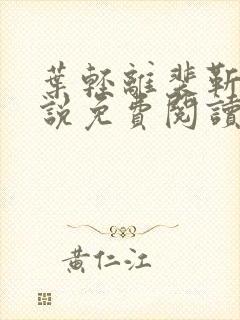 葉輕離裴靳
說免費閱讀
黃仁江